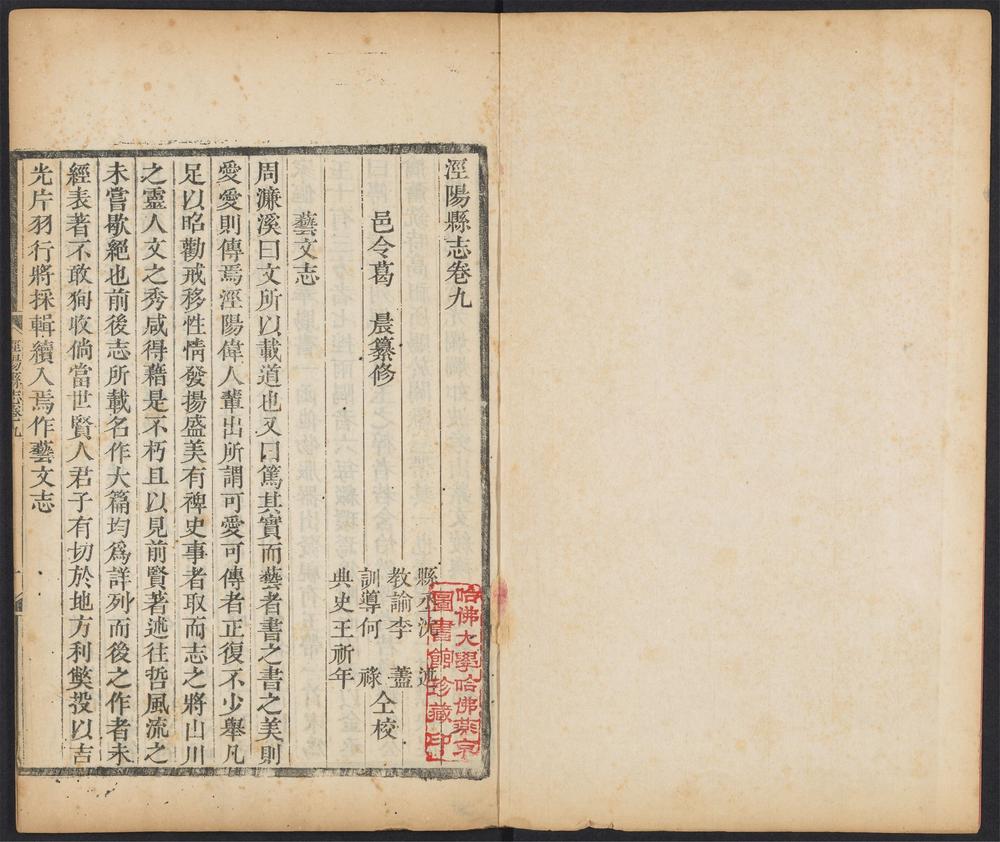 涇陽縣志卷九
邑令葛　晨纂修
縣丞沈　
教諭李　藎
訓導何　祿
典史王祈年
仝校
藝文志
周濂溪曰文所以載道也又曰篤其實而藝者書之書之美則
愛愛則傳焉涇陽偉人輩出所謂可愛可傳者正復不少舉凡
足以昭勸戒移性情發揚盛美有裨史事者取而志之將山川
之靈人文之秀咸得藉是不朽且以見前賢著述往哲風流之
未嘗歇絕也前後志所載名作大篇均爲詳列而後之作者未
經表著不敢狥收倘當世賢人君子有切於地方利獘投以吉
光片羽行將採輯續入焉作藝文志
涇陽縣志卷九
一
哈佛大學哈佛燕京
圖書館珍藏印